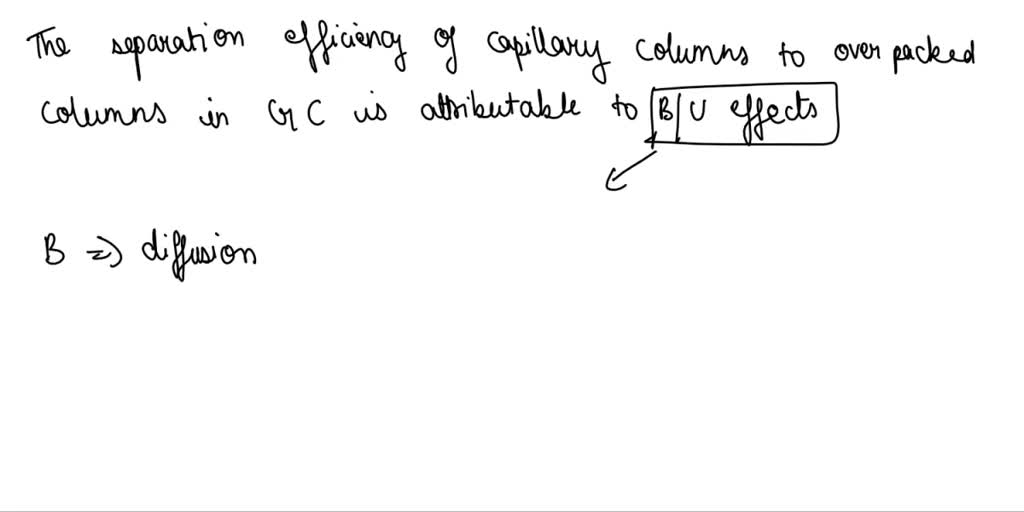 The separation efficiency of capillary columns to over packed
columns in GC is attributable to B/U effects
B => diffusion